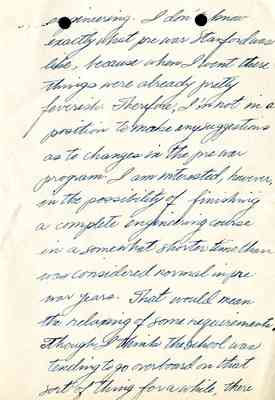 engineering. I don't know
exactly what pre war Stanford was
like, because when I went there
things were already pretty
feverish. Therefore, I'm not in a
position to make any suggestions
as to changes in the pre war
program. I am interested, however,
in the possibility of finishing
a complete engineering course
in a somewhat shorter time than
was considered normal in pre
war years. That would mean
the relaxing of some requirements.
Though I think the school was
tending to go overboard on that
sort of thing for a while, there